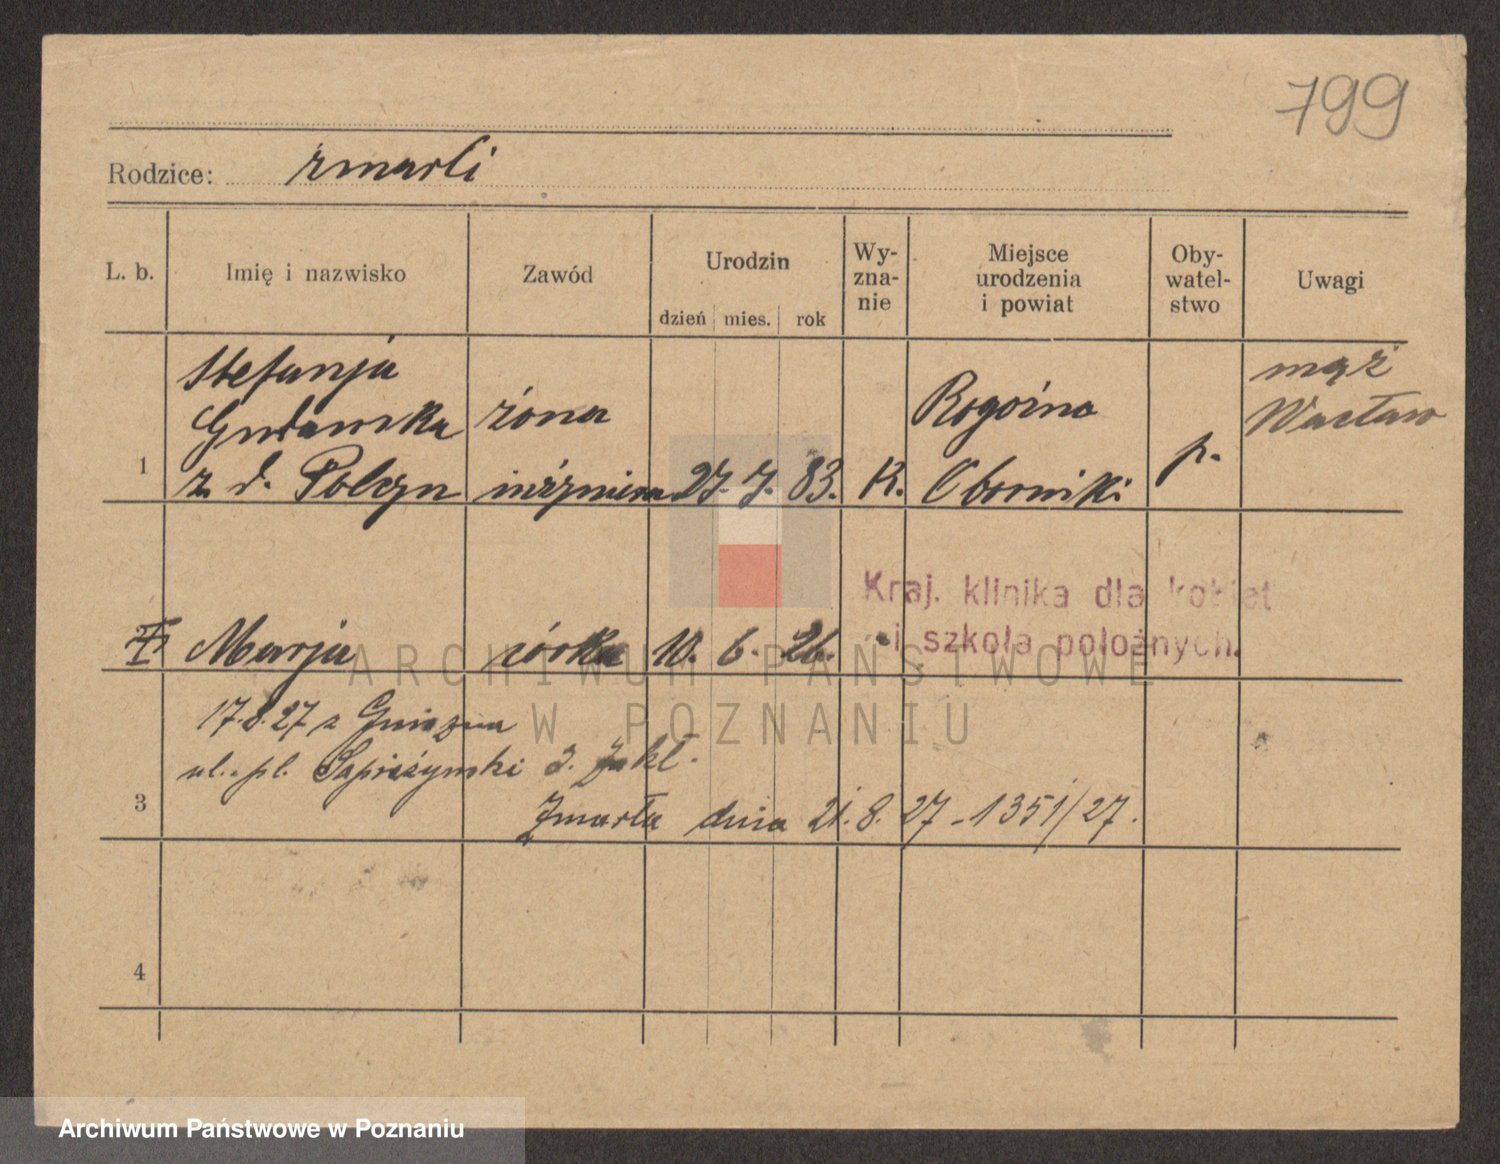 799
Rodzice: zmarli
L. b. Imię i nazwisko Zawód Urodzin dzień mies. rok Wy-zna-nie Miejsce urodzenia i powiat Oby-watel-stwo Uwagi
Stefanja mąż
żona Rogoźno Wacław
1 z d. Polczyn inżyniera 27. 7. 83. K. Oborniki p.
Kraj. klinika dla kobiet
i szkoła położnych.
Marja córka 10. 6. 26.
ARCHIWUM PAŃSTWOWE
17.8.27 z Gniezna
W POZNANIU
ul. pl. 3. zakł.
3 Zmarła dnia 21.8.27 - 1351/27.
4
Archiwum Państwowe w Poznaniu